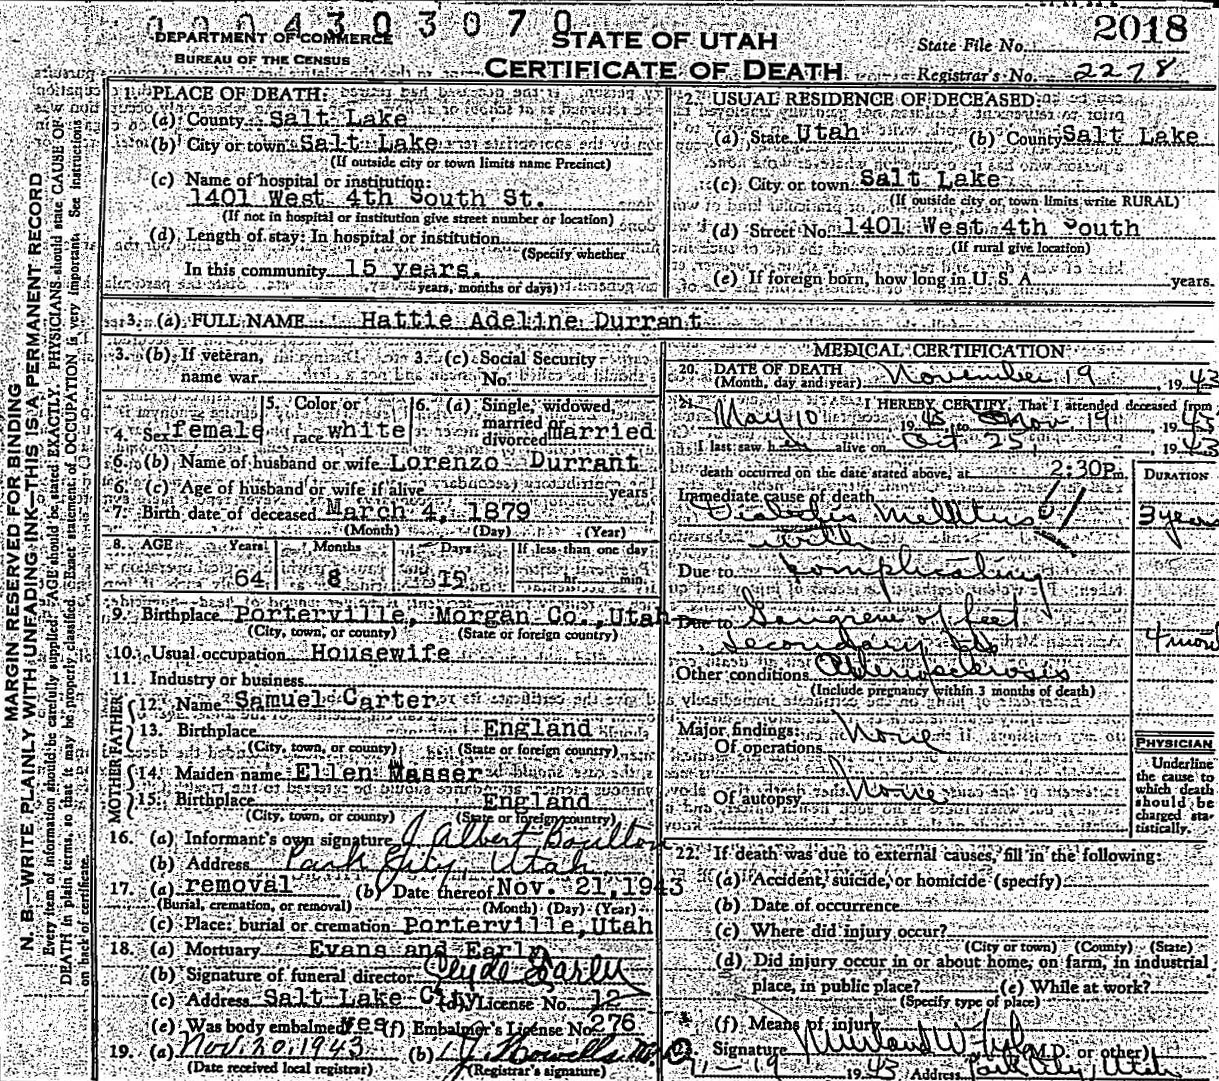 0004303070
DEPARTMENT OF COMMERCE
BUREAU OF THE CENSUS
STATE OF UTAH
CERTIFICATE OF DEATH
State File No. 2018
Registrar's No. 2278
MARGIN RESERVED FOR BINDING
N. B.—WRITE PLAINLY WITH UNFADING INK—THIS IS A PERMANENT RECORD
Every item of information should be carefully supplied. AGE should be stated EXACTLY. PHYSICIANS should state CAUSE OF
DEATH in plain terms, so that it may be properly classified. Exact statement of OCCUPATION is very important. See instructions
on back of certificate.
PLACE OF DEATH:
(a) County Salt Lake
(b) City or town Salt Lake
(If outside city or town limits name Precinct)
(c) Name of hospital or institution:
1401 West 4th South St.
(If not in hospital or institution give street number or location)
(d) Length of stay: In hospital or institution
(Specify whether
In this community 15 years.
years, months or days)
2. USUAL RESIDENCE OF DECEASED:
(a) State Utah (b) County Salt Lake
(c) City or town Salt Lake
(If outside city or town limits write RURAL)
(d) Street No. 1401 West 4th South
(If rural give location)
(e) If foreign born, how long in U. S. A. years.
3. (a) FULL NAME Hattie Adeline Durrant
3. (b) If veteran, 3. (c) Social Security
name war No.
4. Sex female 5. Color or race white 6. (a) Single, widowed, married or divorced married
6. (b) Name of husband or wife Lorenzo Durrant
6. (c) Age of husband or wife if alive years
7. Birth date of deceased March 4, 1879
(Month) (Day) (Year)
8. AGE Years Months Days If less than one day
64 8 15 hr. min.
9. Birthplace Porterville, Morgan Co., Utah
(City, town, or county) (State or foreign country)
10. Usual occupation Housewife
11. Industry or business
FATHER
12. Name Samuel Carter
13. Birthplace England
(City, town, or county) (State or foreign country)
MOTHER
14. Maiden name Ellen Masser
15. Birthplace England
(City, town, or county) (State or foreign country)
16. (a) Informant's own signature J Albert Boulton
(b) Address Park City, Utah
17. (a) removal (b) Date thereof Nov. 21, 1943
(Burial, cremation, or removal) (Month) (Day) (Year)
(c) Place: burial or cremation Porterville, Utah
18. (a) Mortuary Evans and Early
(b) Signature of funeral director Clyde Early
(c) Address Salt Lake City (d) License No. 12
(e) Was body embalmed? Yes (f) Embalmer's License No. 276
19. (a) Nov. 20, 1943 (b)
(Date received local registrar) (Registrar's signature)
MEDICAL CERTIFICATION
20. DATE OF DEATH
(Month, day and year) November 19, 1943
21. I HEREBY CERTIFY, That I attended deceased from
May 10 19 to Nov 19 19
I last saw h alive on Oct 25, 1943
death occurred on the date stated above, at 2:30P m.
DURATION
Immediate cause of death
Diabetis Mellitus 3 years
with
Due to complicating
Due to Gangrene of feet
secondary to 4 mon
Other conditions
(Include pregnancy within 3 months of death)
Major findings:
Of operations None
Of autopsy None
PHYSICIAN
Underline
the cause to
which death
should be
charged sta-
tistically.
22. If death was due to external causes, fill in the following:
(a) Accident, suicide, or homicide (specify)
(b) Date of occurrence
(c) Where did injury occur?
(City or town) (County) (State)
(d) Did injury occur in or about home, on farm, in industrial
place, in public place? (e) While at work?
(Specify type of place)
(f) Means of injury
Signature (M.D. or other)
19 1943 Address Park City, Utah